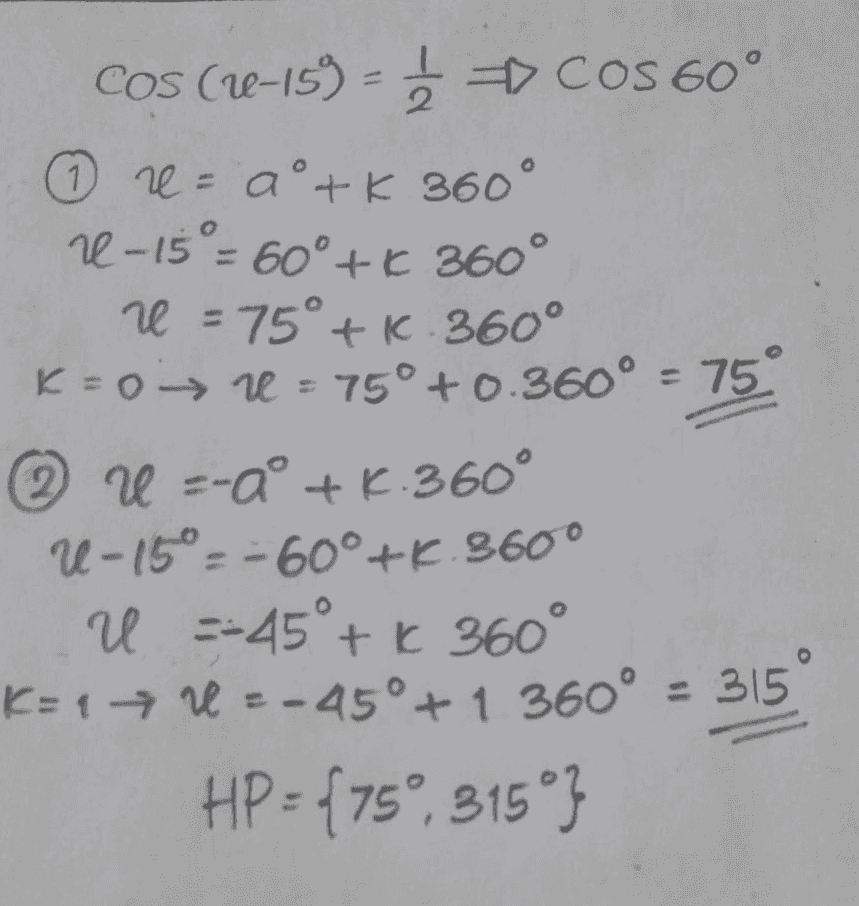 cos (x-15°) = 1/2 ⇒ cos 60°
① x = a° + k 360°
x - 15° = 60° + k 360°
x = 75° + k . 360°
k = 0 → x = 75° + 0.360° = 75°
② x = -a° + k.360°
x - 15° = -60° + k.360°
x = -45° + k 360°
k = 1 → x = -45° + 1 360° = 315°
HP = {75°, 315°}